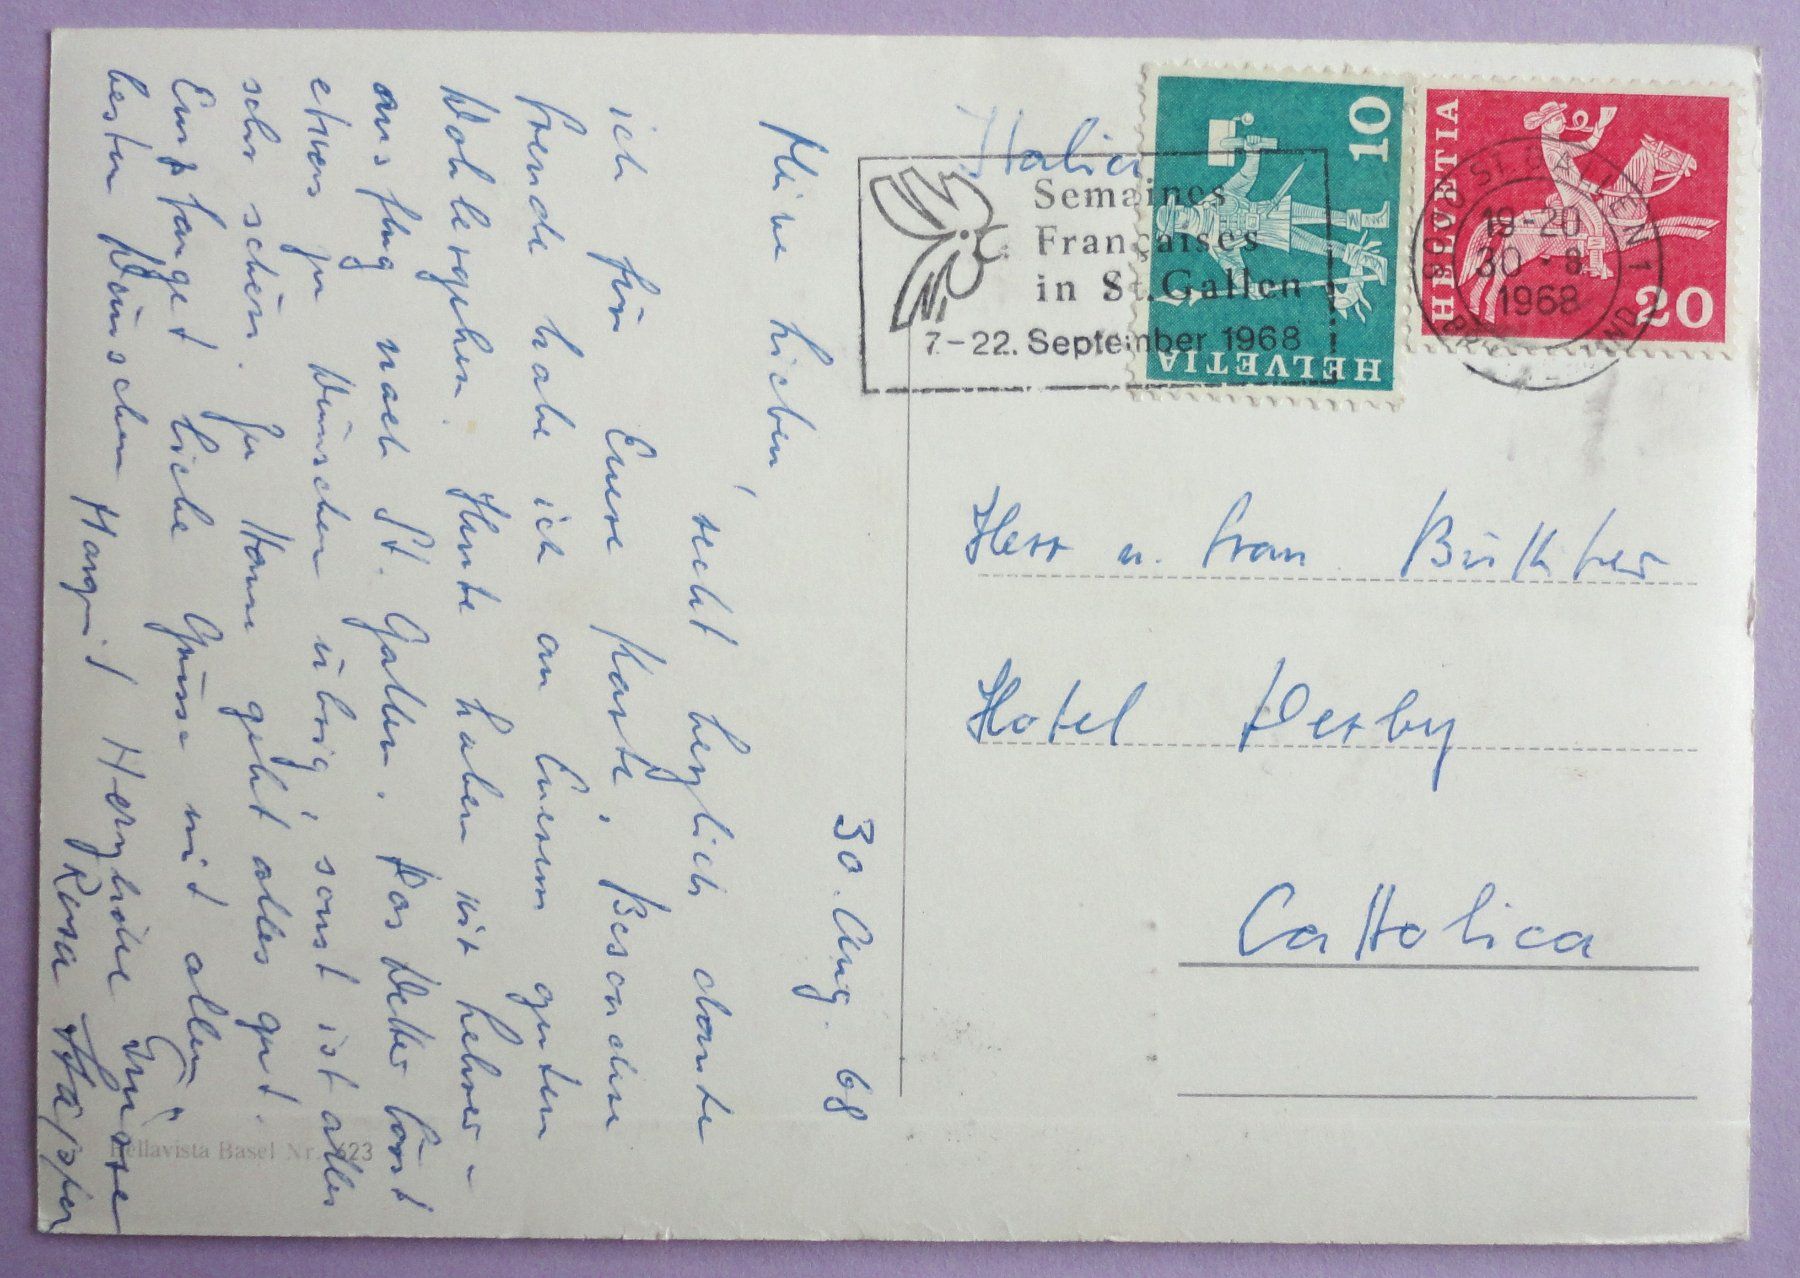 30. Aug. 68
Meine Lieben,
recht herzlich dankte
ich für Euere Karte. Besondere
Freude habe ich an Euerem guten
Wohlergehen. Heute haben wir Lehrer-
ausflug nach St. Gallen. Das Wetter lässt
etwas zu Wünschen übrig, sonst ist alles
sehr schön. Zu Hause geht alles gut.
Empfanget liebe Grüsse mit allen
besten Wünschen Margrit Herzliche Grüsse
Rosa
Italien
Semaines
Françaises
in St. Gallen
7-22. September 1968
HELVETIA
10
HELVETIA
20
9000 ST. GALLEN 1
19-20
30-8
1968
Herr u. Frau
Hotel Derby
Cattolica
Bellavista Basel Nr. 1623